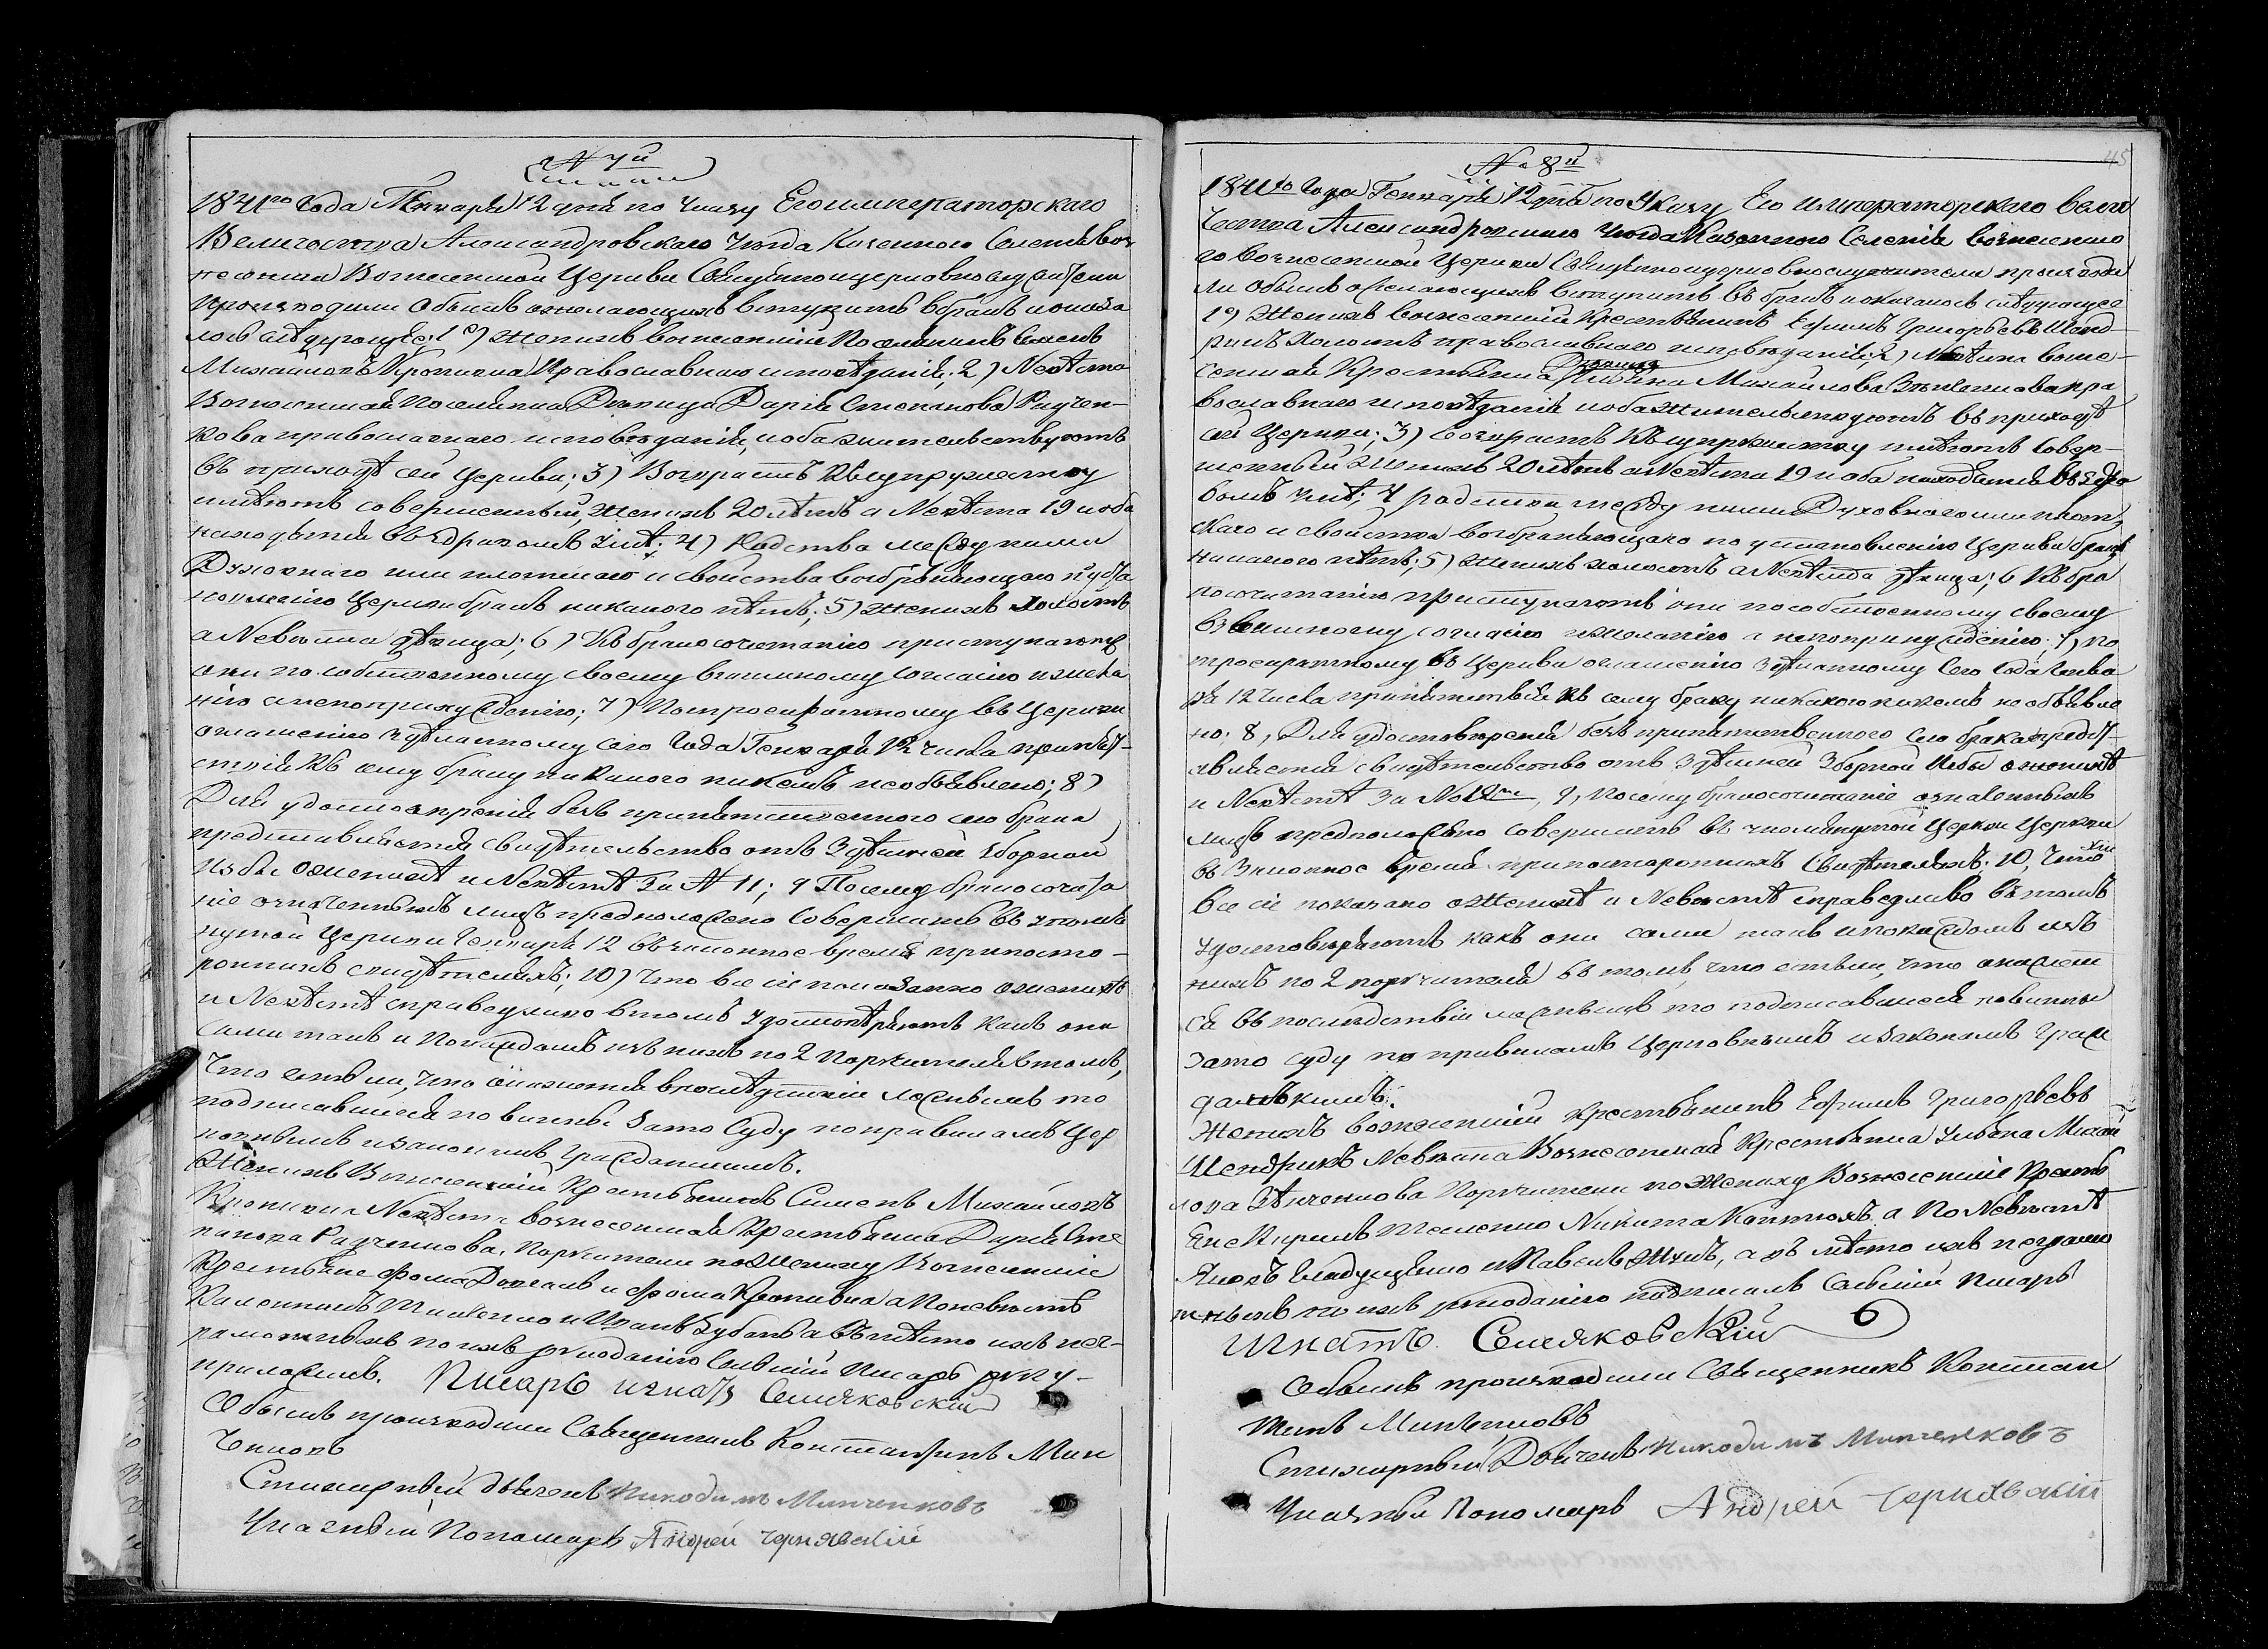 N 7й
1841го Года Генваря 12 дня по Указу Его императорскаго
Величества Александровскаго Уезда Казенного Селения Воз
несенки Вознесенской Церкви Священноцерковнослужители
производили Обыскъ о желающихъ вступить в бракъ и оказа
лось следующее; 1е) Женихъ вознесенский Поселянинъ Симеонъ
Михайловъ Кропивка Православнаго исповѣдания; 2) Невѣста
Вознесенская Поселянка Дѣвица Дария Степанова Радчен-
кова православнаго исповѣдания, и оба жительствуютъ
въ приходѣ сей Церкви; 3) Возрастъ Къ супружеству
имѣютъ совершенный, Женихъ 20 лѣтъ а Невѣста 19 и оба
находятся въ здравомъ умѣ; 4) Родства между ними
Духовнаго или плотскаго и свойства возбраняющаго по уста
новлению Церкви бракъ никакого нѣтъ; 5) Женихъ холостъ
а Невѣста дѣвица; 6) Къ бракосочетанию приступаютъ
они по собственному своему взаимному согласию и жела
нию а непопринуждению; 7) По троекратному въ Церкви
оглашению здѣланному сего Года Генваря 12 числа препят-
ствия Къ сему браку никакого никемъ не объявлено; 8)
Для удостоверения безъ препятственного сего брака
представляется свидѣтельство отъ Здѣшней Зборной
избы о женихѣ и Невѣстѣ За N 11; 9 Посему бракосочета
ние означенныхъ лицъ предположено Совершить въ упомя
нутой Церкви Генваря 12 въ узаконное время при посто-
роннихъ свидѣтеляхъ; 10) Что все сие показанно о женихѣ
и Невѣстѣ справедливо в томъ Удостовѣряютъ какъ они
сами такъ и По каждомъ изъ нихъ по 2 Поручителя в томъ,
Что естьли, что окажется впослѣдствии ложнымъ то
подписавшиеся повинны За то Суду по правиламъ Цер
ковнымъ и законамъ Гражданскимъ.
Женихъ Вознесенский Крестьянинъ Симеонъ Михайловъ
Кропивка Невѣста вознесенская Крестьянка Дария Сте
панова Радченкова. Поручители по Жениху Вознесенские
Крестьяне Фома Довгаль и Фома Кропивка а По невѣстѣ
Тимченко и Иванъ Зубань а въ мѣсто ихъ нег-
рамотныхъ по ихъ рукоданию Сельский Писарь руку-
приложилъ. Писарь игнатъ Семяковский
Обыскъ производили Священникъ Константинъ Мин
ченковъ
Стихарный Дьячекъ Никодимъ Минченковъ
Указный Пономарь Андрей Чернявский
45
No 8й
1841го Года Генваря 12 дня по Указу Его императорскаго Вели
чества Александровскаго Уезда Казенного Селения вознесенско
го Вознесенской Церкви Священноцерковнослужители производи
ли Обыскъ о желающихъ вступить въ бракъ и оказалось следующее
1е) Женихъ вознесенский Крестьянинъ Ефимъ Григорьевъ Шенд-
рикъ Холостъ православнаго исповѣдания; 2) Невѣста возне-
сенская Крестьянка Дѣвица Улияна Михайлова Зѣнченкова пра
вославнаго исповѣдания и оба жительствуютъ въ приходѣ
сей Церкви; 3) Возрастъ Къ супружеству имѣютъ Совер-
шенный Женихъ 20 лѣтъ а Невѣста 19 и оба находятся въ здра
вомъ умѣ; 4 родства между ними Духовного или плот-
скаго и свойства возбраняющаго по установлению Церкви бракъ
никакого нѣтъ; 5) Женихъ холостъ а Невѣста дѣвица; 6 Къ бра
косочетанию приступаютъ они по собственному своему
взаимному согласию и желанию а непопринуждению. 7) по
троекратному въ Церкви оглашению здѣланному Сего Года Генва
ря 12 Числа препятствия къ сему браку никакого никемъ не объявле
но; 8, Для удостоверения безъ препятственного сего брака предс-
тавляется свидѣтельство отъ Здѣшней Зборной Избы о женихѣ
и Невѣстѣ За No 12мъ, 9, посему бракосочетание означенныхъ
лицъ предположено совершить въ упомянутой Церкви Церкви
въ Узаконное время при постороннихъ Свидѣтеляхъ; 10, Что
все сие показано о Женихѣ и Невѣстѣ справедливо въ томъ
удостовѣряютъ какъ они сами такъ и по каждомъ изъ
нихъ по 2 поручителя въ томъ, что естьли, что окажет
ся въ последствии ложнымъ то подписавшиеся повинны
за то суду по правиламъ Церковнымъ и законамъ Граж
данскимъ.
Женихъ вознесенский Крестьянинъ Ефимъ Григорьевъ
Шендрикъ Невѣста Вознесенская Крестьянка Улияна Михай
лова Зѣнченкова Поручители по Жениху Вознесенские Крестья
не Кирилъ Никита а По Невѣстѣ
Яковъ и Павелъ а въ мѣсто ихъ неграмо
тныхъ по ихъ рукоданию подписалъ Сельский Писарь
Игнатъ Семяковский
Обыскъ производили Священникъ Констан
тинъ Минченковъ
Стихарный Дьячекъ Никодимъ Минченковъ
Указный Пономарь Андрей Чернявский